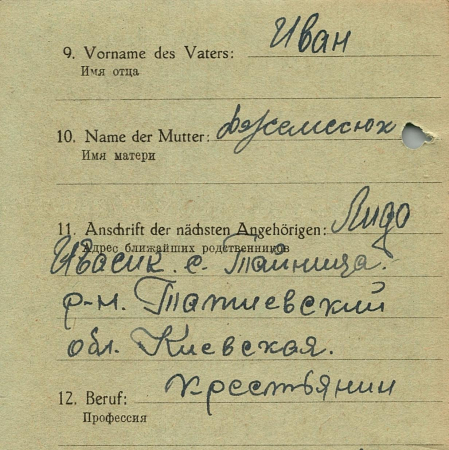 9. Vorname des Vaters: Иван
Имя отца
10. Name der Mutter: Джемесюк
Имя матери
11. Anschrift der nächsten Angehörigen: Лидо
Адрес ближайших родственников
Ивасик. с. Тайница.
р-н. Татиевский
обл. Киевская.
12. Beruf: крестьянин
Профессия